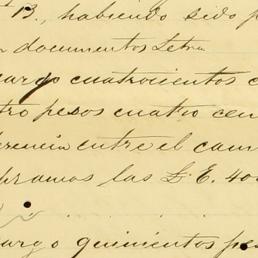 B., habiendo sido p
documentos Letra
argo cuatrocientos c
tro pesos cuatro cen
erencia entre el cam
pramos las £. E. 400
argo quinientos pe